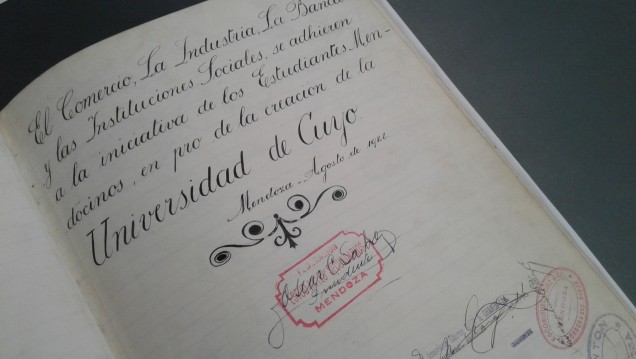 El Comercio, La Industria, La Banca
y las Instituciones Sociales, se adhieren
a la iniciativa de los Estudiantes Men-
docinos, en pro de la creacion de la
Universidad de Cuyo.
Mendoza - Agosto de 1922
MENDOZA